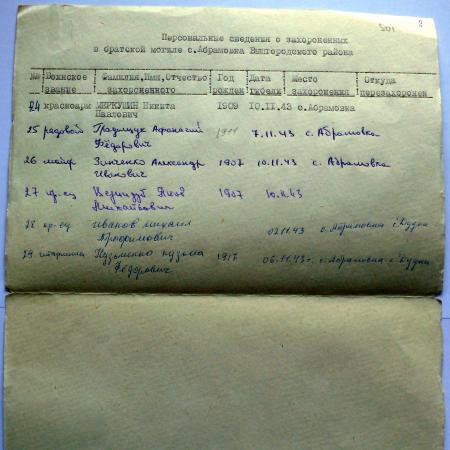 501
Персональные сведения о захороненных
в братской могиле с.Абрамовка Вышгородского района
№№ Воинское Фамилия,Имя,Отчество Год Дата Место Откуда
звание захороненного рожден гибели захоронения перезахоронен
24 красноарм МЕРКУШИН Никита 1909 10.II.43 с.Абрамовка
Павлович
25 рядовой Афанасий 1911 7.11.43 с. Абрамовка
Фёдорович
26 Зинченко Александр 1907 10.11.43 с. Абрамовка
Иванович
27 кр-ец Яков 1907 10.11.43
Михайлович
28 кр-ец Иванов Михаил 02.11.43 с. Абрамовка
29 старшина Кузьменко Кузьма 1917 06.11.43г. с. Абрамовка
Федорович